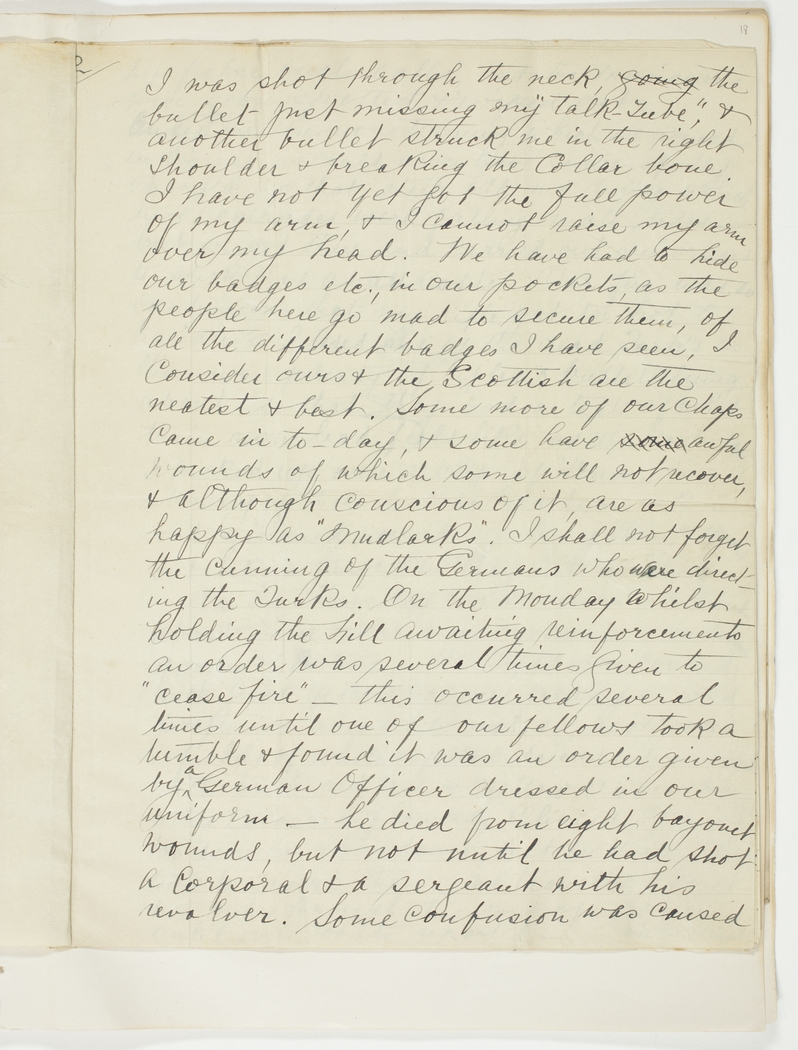 18
2/
I was shot through the neck, going the
bullet just missing my "talk-Tube", &
another bullet struck me in the right
shoulder & breaking the Collar bone.
I have not yet got the full power
of my arm, & I cannot raise my arm
over my head. We have had to hide
our badges etc., in our pockets, as the
people here go mad to secure them, of
all the different badges I have seen, I
Consider ours & the Scottish are the
neatest & best. Some more of our Chaps
Came in to-day, & some have some awful
wounds of which some will not recover,
& although conscious of it, are as
happy as "Mudlarks". I shall not forget
the cunning of the Germans who were direct-
ing the Turks. On the Monday whilst
holding the hill awaiting reinforcements
an order was several times given to
"cease fire" - this occurred several
times until one of our fellows took a
tumble & found it was an order given
by a German Officer dressed in our
uniform - he died from eight bayonet
wounds, but not until he had shot
a Corporal & a sergeant with his
revolver. Some confusion was caused